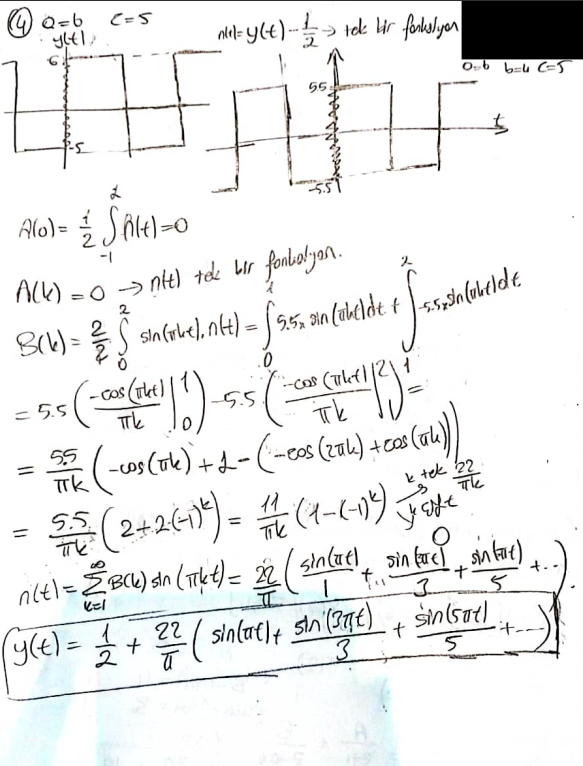 ④ a=6 c=5 n(t)=y(t)-1/2 → tek bir fonksiyon
y(t)
a=6 b=4 c=5
6
5.5
t
-5
-5.5
A(0)= 1/2 ∫_{-1}^{1} n(t)=0
A(k)=0 → n(t) tek bir fonksiyon.
B(k)= 2/2 ∫_0^2 sin(πkt).n(t) = ∫_0^1 5.5x sin(πkt)dt + ∫^2 -5.5x sin(πkt)dt
= 5.5 (-cos(πkt)/πk |_0^1) -5.5 (-cos(πkt)/πk |_1^2) =
= 5.5/πk (-cos(πk) + 1 - (-cos(2πk) + cos(πk)))
= 5.5/πk (2+2(-1)^k) = 11/πk (1-(-1)^k) k tek 22/πk
k çift 0
n(t)= ∑_{k=1}^{∞} B(k) sin(πkt) = 22/π (sin(πt)/1 + ... sin(3πt)/3 + sin(5πt)/5 + ...)
y(t) = 1/2 + 22/π (sin(πt) + sin(3πt)/3 + sin(5πt)/5 + ...)